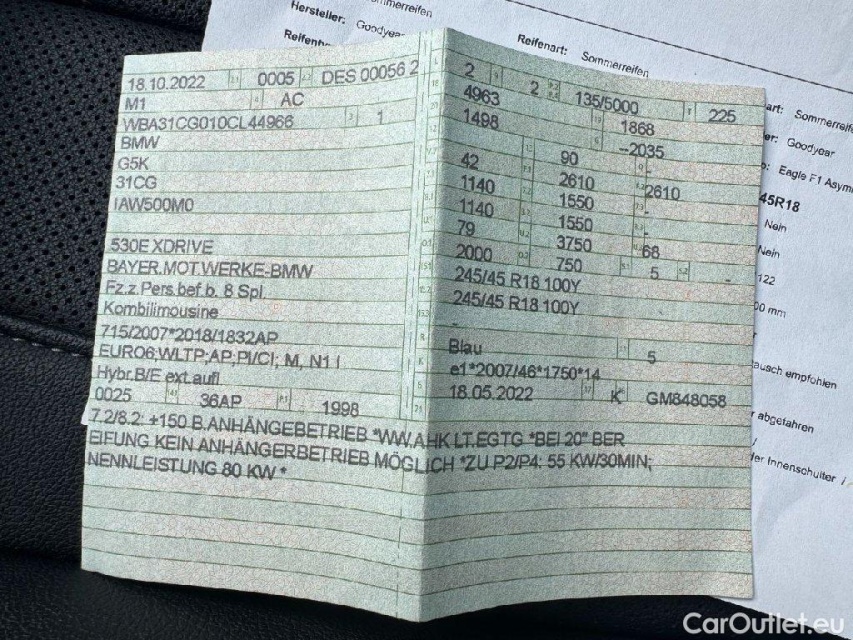 Hersteller: Goodyear
Sommerreifen
Reifenart: Sommerreifen
18.10.2022 0005 DES 00056 2
M1 AC
WBA31CG010CL44966 1
BMW
G5K
31CG
IAW500M0
530E XDRIVE
BAYER.MOT.WERKE-BMW
Fz.z.Pers.bef.b. 8 Spl.
Kombilimousine
715/2007*2018/1832AP
EURO6;WLTP;AP;PI/CI; M, N1 I
Hybr.B/E ext.aufl
0025 36AP 1998
2 2 135/5000 225
4963 1868
1498 --2035
42 90 -
1140 2610 2610
1140 1550 -
79 1550 -
2000 3750 68
750 5 -
245/45 R18 100Y
245/45 R18 100Y
-
Blau 5
e1*2007/46*1750*14
18.05.2022 K GM848058
7.2/8.2: +150 B.ANHÄNGEBETRIEB *WW.AHK LT.EGTG *BEI 20" BER
EIFUNG KEIN ANHÄNGERBETRIEB MÖGLICH *ZU P2/P4: 55 KW/30MIN;
NENNLEISTUNG 80 KW *
art: Sommerreife
er: Goodyear
: Eagle F1 Asym
45R18
Nein
Nein
122
00 mm
ausch empfohlen
abgefahren
er Innenschulter /
CarOutlet.eu